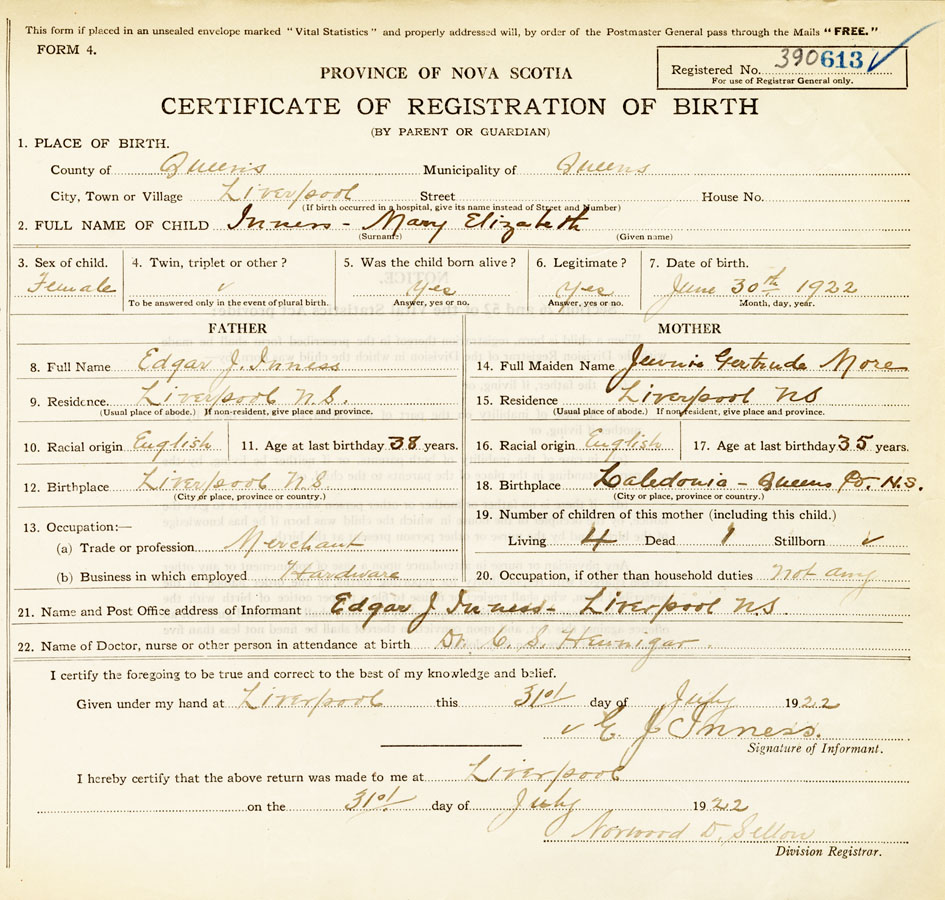 This form if placed in an unsealed envelope marked "Vital Statistics" and properly addressed will, by order of the Postmaster General pass through the Mails "FREE."
FORM 4.
Registered No. 390613
For use of Registrar General only.
PROVINCE OF NOVA SCOTIA
CERTIFICATE OF REGISTRATION OF BIRTH
(BY PARENT OR GUARDIAN)
1. PLACE OF BIRTH.
County of Queens Municipality of Queens
City, Town or Village Liverpool Street House No.
(If birth occurred in a hospital, give its name instead of Street and Number)
2. FULL NAME OF CHILD Inness - Mary Elizabeth
(Surname) (Given name)
3. Sex of child. 4. Twin, triplet or other? 5. Was the child born alive? 6. Legitimate? 7. Date of birth.
Female ✓ Yes Yes June 30th 1922
To be answered only in the event of plural birth. Answer, yes or no. Answer, yes or no. Month, day, year.
FATHER
8. Full Name Edgar J. Inness
9. Residence. Liverpool N.S.
(Usual place of abode.) If non-resident, give place and province.
10. Racial origin English 11. Age at last birthday 38 years.
12. Birthplace Liverpool N.S
(City or place, province or country.)
13. Occupation:—
(a) Trade or profession Merchant
(b) Business in which employed Hardware
MOTHER
14. Full Maiden Name Jennie Gertrude More
15. Residence Liverpool NS
(Usual place of abode.) If non-resident, give place and province.
16. Racial origin English 17. Age at last birthday 35 years.
18. Birthplace Caledonia - Queens Co. N.S.
(City or place, province or country.)
19. Number of children of this mother (including this child.)
Living 4 Dead 1 Stillborn ✓
20. Occupation, if other than household duties Not any
21. Name and Post Office address of Informant Edgar J Inness - Liverpool N.S
22. Name of Doctor, nurse or other person in attendance at birth Dr. C. S. Hennigar.
I certify the foregoing to be true and correct to the best of my knowledge and belief.
Given under my hand at Liverpool this 31st day of July 1922
✓ E J Inness.
Signature of Informant.
I hereby certify that the above return was made to me at Liverpool
on the 31st day of July 1922
Norwood D. Sellon
Division Registrar.